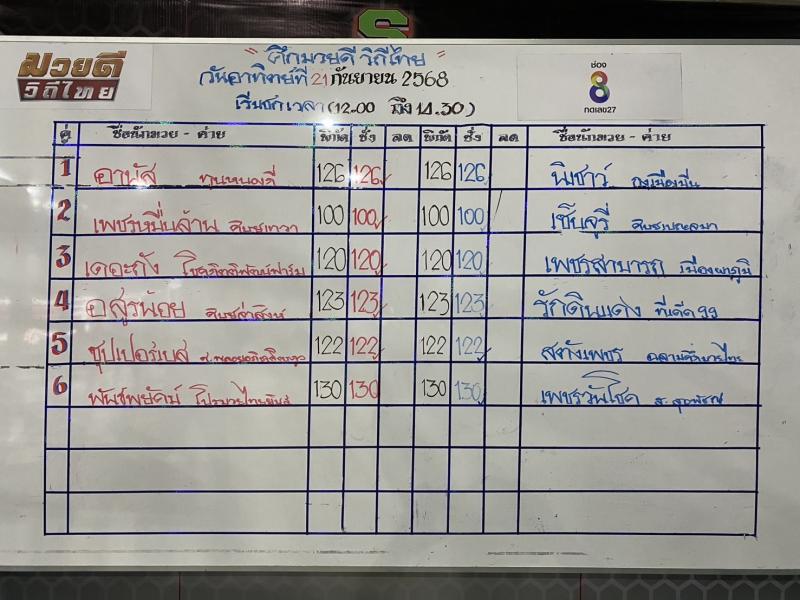 S
มวยดี
วิถีไทย
"ศึกมวยดี วิถีไทย"
วันอาทิตย์ที่ 21 กันยายน 2568
เริ่มชกเวลา (12.00 ถึง 14.30)
ช่อง
8
กดเลข27
คู่ ชื่อนักมวย - ค่าย พิกัด ชั่ง ลด พิกัด ชั่ง ลด ชื่อนักมวย - ค่าย
1 อานัส 126 126 126 126 นิชาว์
2 เพชรหมื่นล้าน 100 100 100 100 เซ็นจูรี่
3 เดอะกัง โชคกิตติพัฒน์ฟาร์ม 120 120 120 120 เพชรสามารถ เมืองผาภูมิ
4 อสูรพ้อย ศิษย์ล่าสิงห์ 123 123 123 123 รักดินแดง ทีเด็ด99
5 ซุปเปอร์เบส 122 122 122 122 สตังเพชร
6 พันธ์พยัคฆ์ 130 130 130 130 เพชรวันโชค